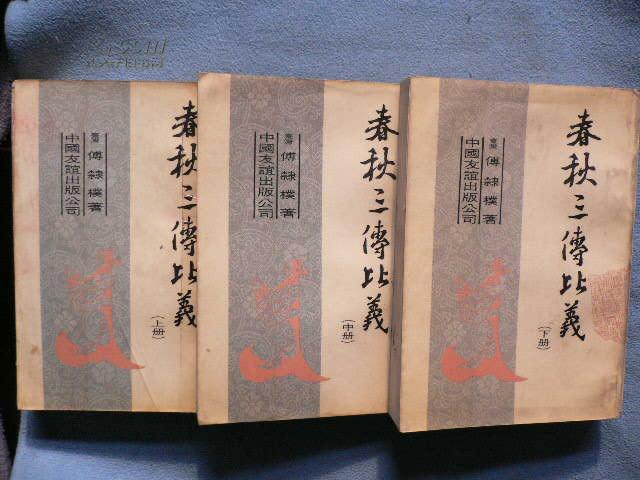 春秋三傳比義
（上册）
臺灣 傅隸樸著
中國友誼出版公司
春秋三傳比義
（中册）
臺灣 傅隸樸著
中國友誼出版公司
春秋三傳比義
（下册）
臺灣 傅隸樸著
中國友誼出版公司